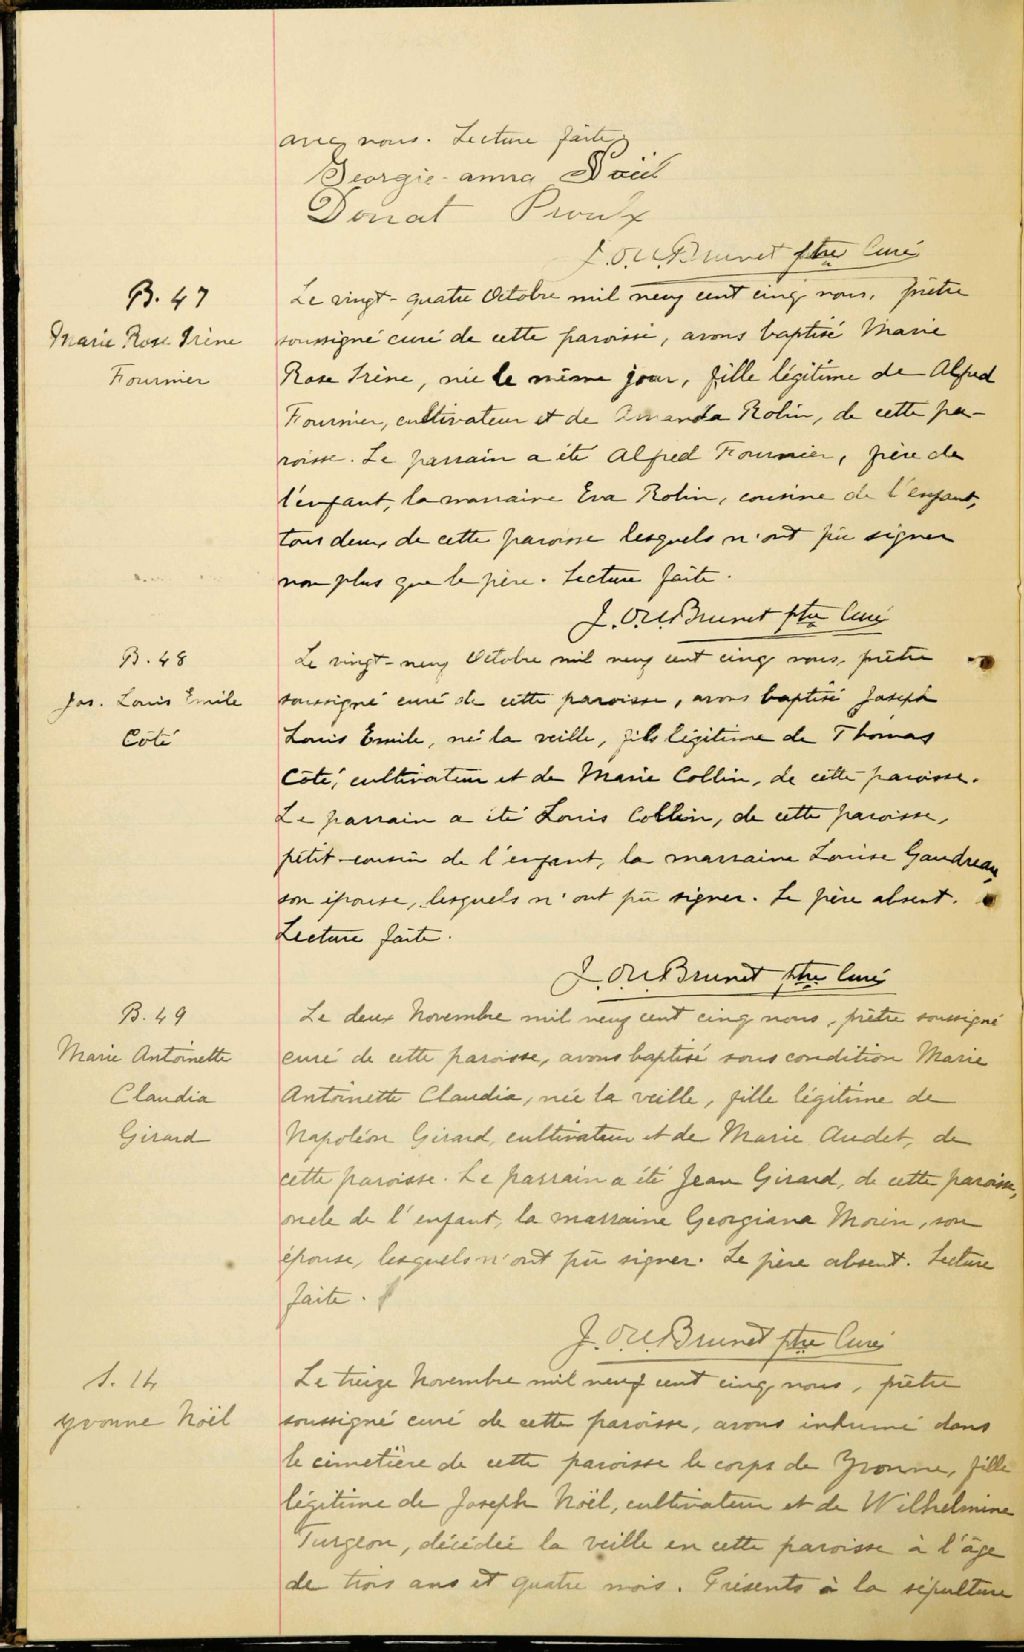 avec nous. Lecture faite.
Georgie-anna Noël
Donat Proulx
J. O. U. Brunet ptre Curé
B. 47
Marie Rose Irène
Fournier
Le vingt-quatre Octobre mil neuf cent cinq nous, prêtre
soussigné curé de cette paroisse, avons baptisé Marie
Rose Irène, née le même jour, fille légitime de Alfred
Fournier, cultivateur et de Amanda Robin, de cette pa-
roisse. Le parrain a été Alfred Fournier, frère de
l'enfant, la marraine Eva Robin, cousine de l'enfant,
tous deux de cette paroisse lesquels n'ont pû signer
non plus que le père. Lecture faite.
J. O. U. Brunet ptre Curé
B. 48
Jos. Louis Emile
Côté
Le vingt-neuf Octobre mil neuf cent cinq nous, prêtre
soussigné curé de cette paroisse, avons baptisé Joseph
Louis Emile, né la veille, fils légitime de Thomas
Côté, cultivateur et de Marie Collin, de cette paroisse.
Le parrain a été Louis Collin, de cette paroisse,
petit-cousin de l'enfant, la marraine Louise Gaudreau,
son épouse, lesquels n'ont pû signer. Le père absent.
Lecture faite.
J. O. U. Brunet ptre Curé
B. 49
Marie Antoinette
Claudia
Girard
Le deux Novembre mil neuf cent cinq nous, prêtre soussigné
curé de cette paroisse, avons baptisé sous condition Marie
Antoinette Claudia, née la veille, fille légitime de
Napoléon Girard, cultivateur et de Marie Audet, de
cette paroisse. Le parrain a été Jean Girard, de cette paroisse,
oncle de l'enfant, la marraine Georgiana Morin, son
épouse, lesquels n'ont pû signer. Le père absent. Lecture
faite.
J. O. U. Brunet ptre Curé
S. 14
Yvonne Noël
Le treize Novembre mil neuf cent cinq nous, prêtre
soussigné curé de cette paroisse, avons inhumé dans
le cimetière de cette paroisse le corps de Yvonne, fille
légitime de Joseph Noël, cultivateur et de Wilhelmine
Turgeon, décédée la veille en cette paroisse à l'âge
de trois ans et quatre mois. Présents à la sépulture